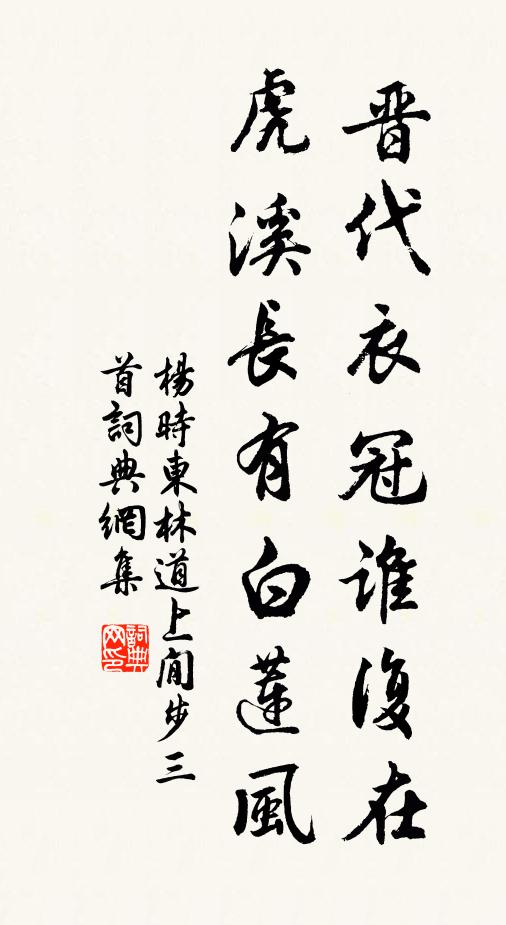 晋代衣冠誰復在
虎溪長有白蓮風
楊時東林道上閒步三
首詞典網集
詞典
网印